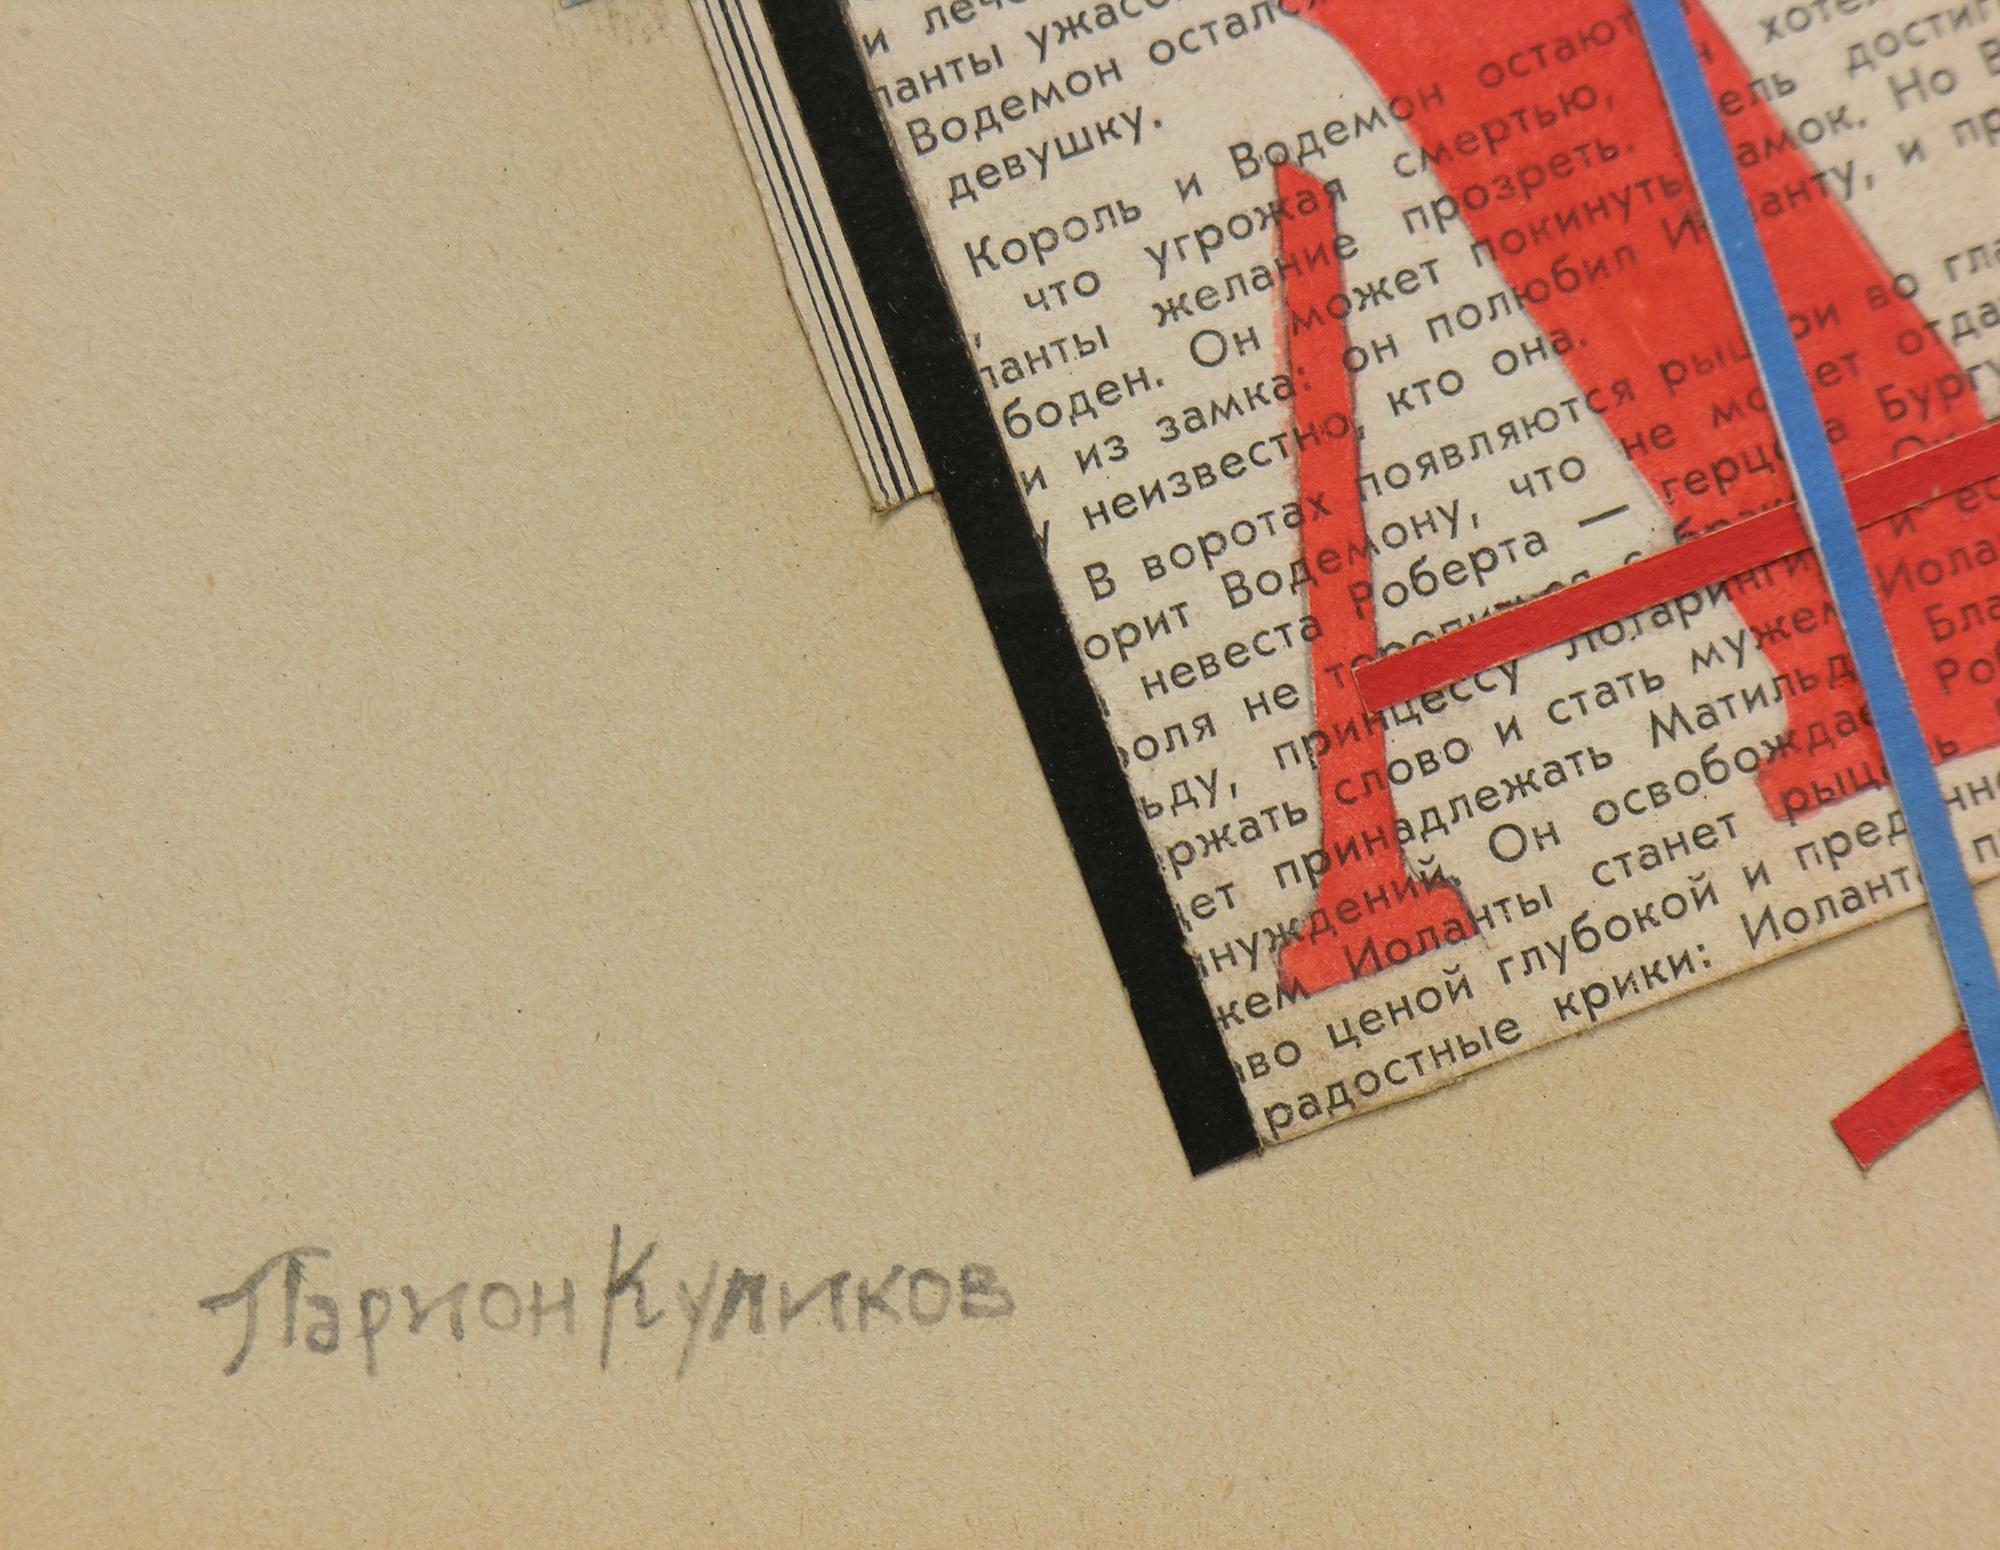 и лече
ланты ужасо
Водемон осталс
девушку.
Король и Водемон остают хотел
что угрожая смертью, ель достиг
ланты желание прозреть. амок. Но В
боден. Он может покинуть анту, и пр
и из замка: он полюбил И
у неизвестно, кто она.
В воротах появляются рыц ри во гла
орит Водемону, что не мо ет отда
невеста Роберта — герцо а Бургу
оля не торопится с брак и ес
ьду, принцессу Лотаринги Иола
ржать слово и стать мужем Бла
ет принадлежать Матильд Ро
нуждений. Он освобождае ь
жем Иоланты станет рыц
во ценой глубокой и пред чно
радостные крики: Иолант п
Ларион Куликов